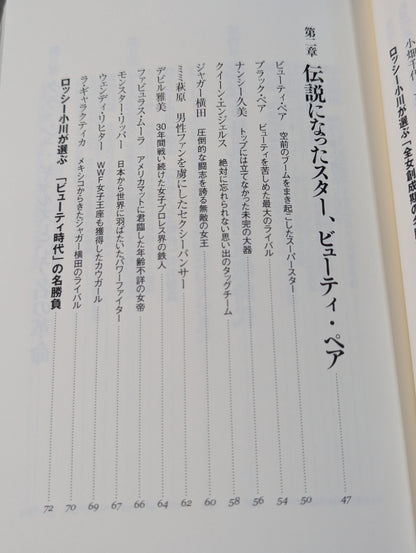 小畑千代
ロッシー小川が選ぶ「全女創成期の
第二章 伝説になったスター、ビューティ・ペア 47
ビューティ・ペア 空前のブームをまき起こしたスーパースター 50
ブラック・ペア ビューティを苦しめた最大のライバル 54
ナンシー久美 トップには立てなかった未完の大器 56
クイーン・エンジェルス 絶対に忘れられない思い出のタッグチーム 58
ジャガー横田 圧倒的な闘志を誇る無敵の女王 60
ミミ萩原 男性ファンを虜にしたセクシーパンサー 62
デビル雅美 30年間戦い続けた女子プロレス界の鉄人 64
ファビュラス・ムーラ アメリカマットに君臨した年齢不詳の女帝 66
モンスター・リッパー 日本から世界に羽ばたいたパワーファイター 67
ウェンディ・リヒター WWF女子王座も獲得したカウガール 69
ラ・ギャラクティカ メキシコからきたジャガー横田のライバル 70
ロッシー小川が選ぶ 「ビューティ時代」の名勝負 72